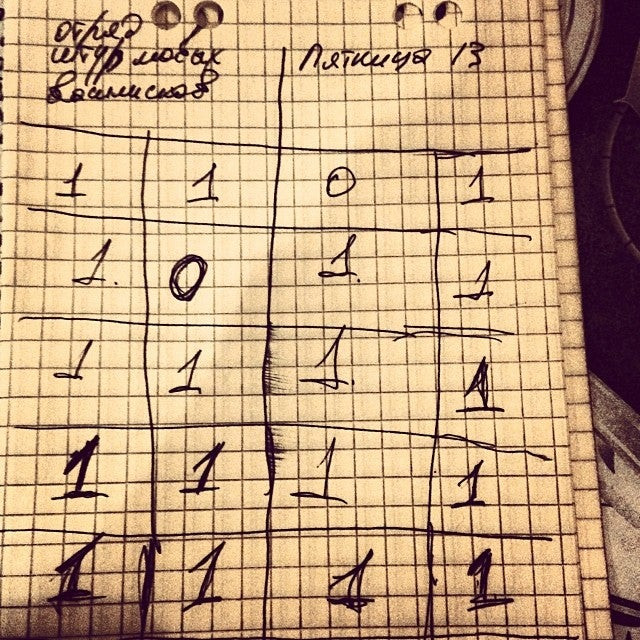 отряд
штурмовых
Пятница 13
1 1 0 1
1. 0 1. 1
1 1 1. 1
1 1 1 1
1 1 1 1